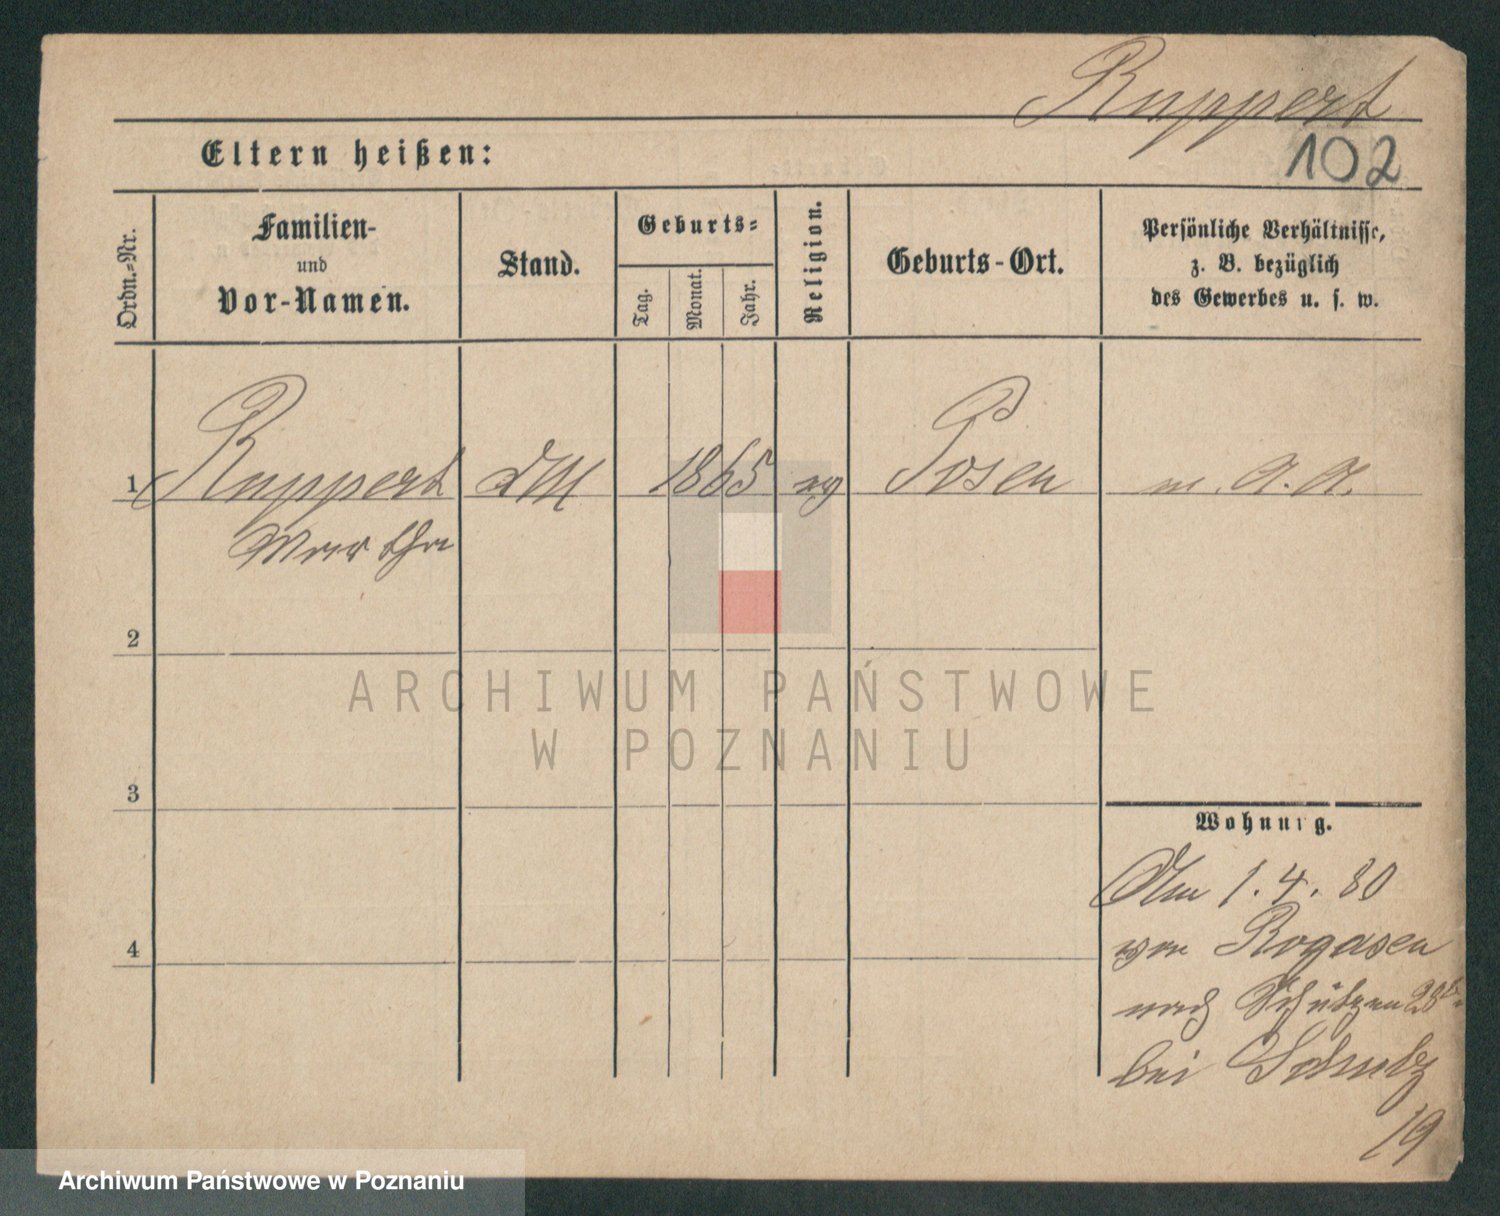 Ruppert
102
Eltern heißen:
Ordn.-Nr.
Familien-
und
Vor-Namen.
Stand.
Geburts-
Tag.
Monat.
Jahr.
Religion.
Geburts-Ort.
Persönliche Verhältnisse,
z. B. bezüglich
des Gewerbes u. s. w.
1 Ruppert DM 1865 ev Posen m. A. A.
Martha
2
ARCHIWUM PAŃSTWOWE
W POZNANIU
3
Wohnung.
Am 1. 4. 80
von Rogasen
4
nach Schützen
bei Schulz
19
Archiwum Państwowe w Poznaniu